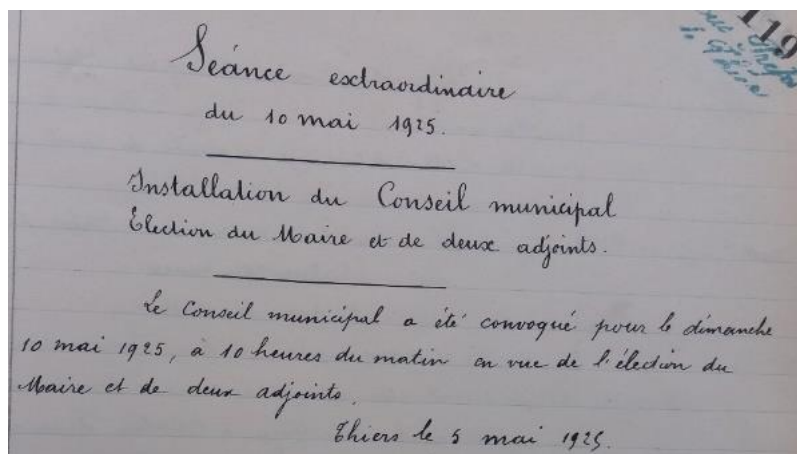 119
Séance extraordinaire
du 10 mai 1925.
Installation du Conseil municipal
Élection du Maire et de deux adjoints.
Le Conseil municipal a été convoqué pour le dimanche
10 mai 1925, à 10 heures du matin en vue de l'élection du
Maire et de deux adjoints.
Thiers le 5 mai 1925.